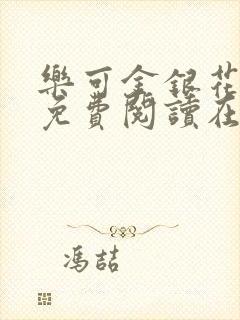 樂可金銀花
免費閱讀在
馮喆